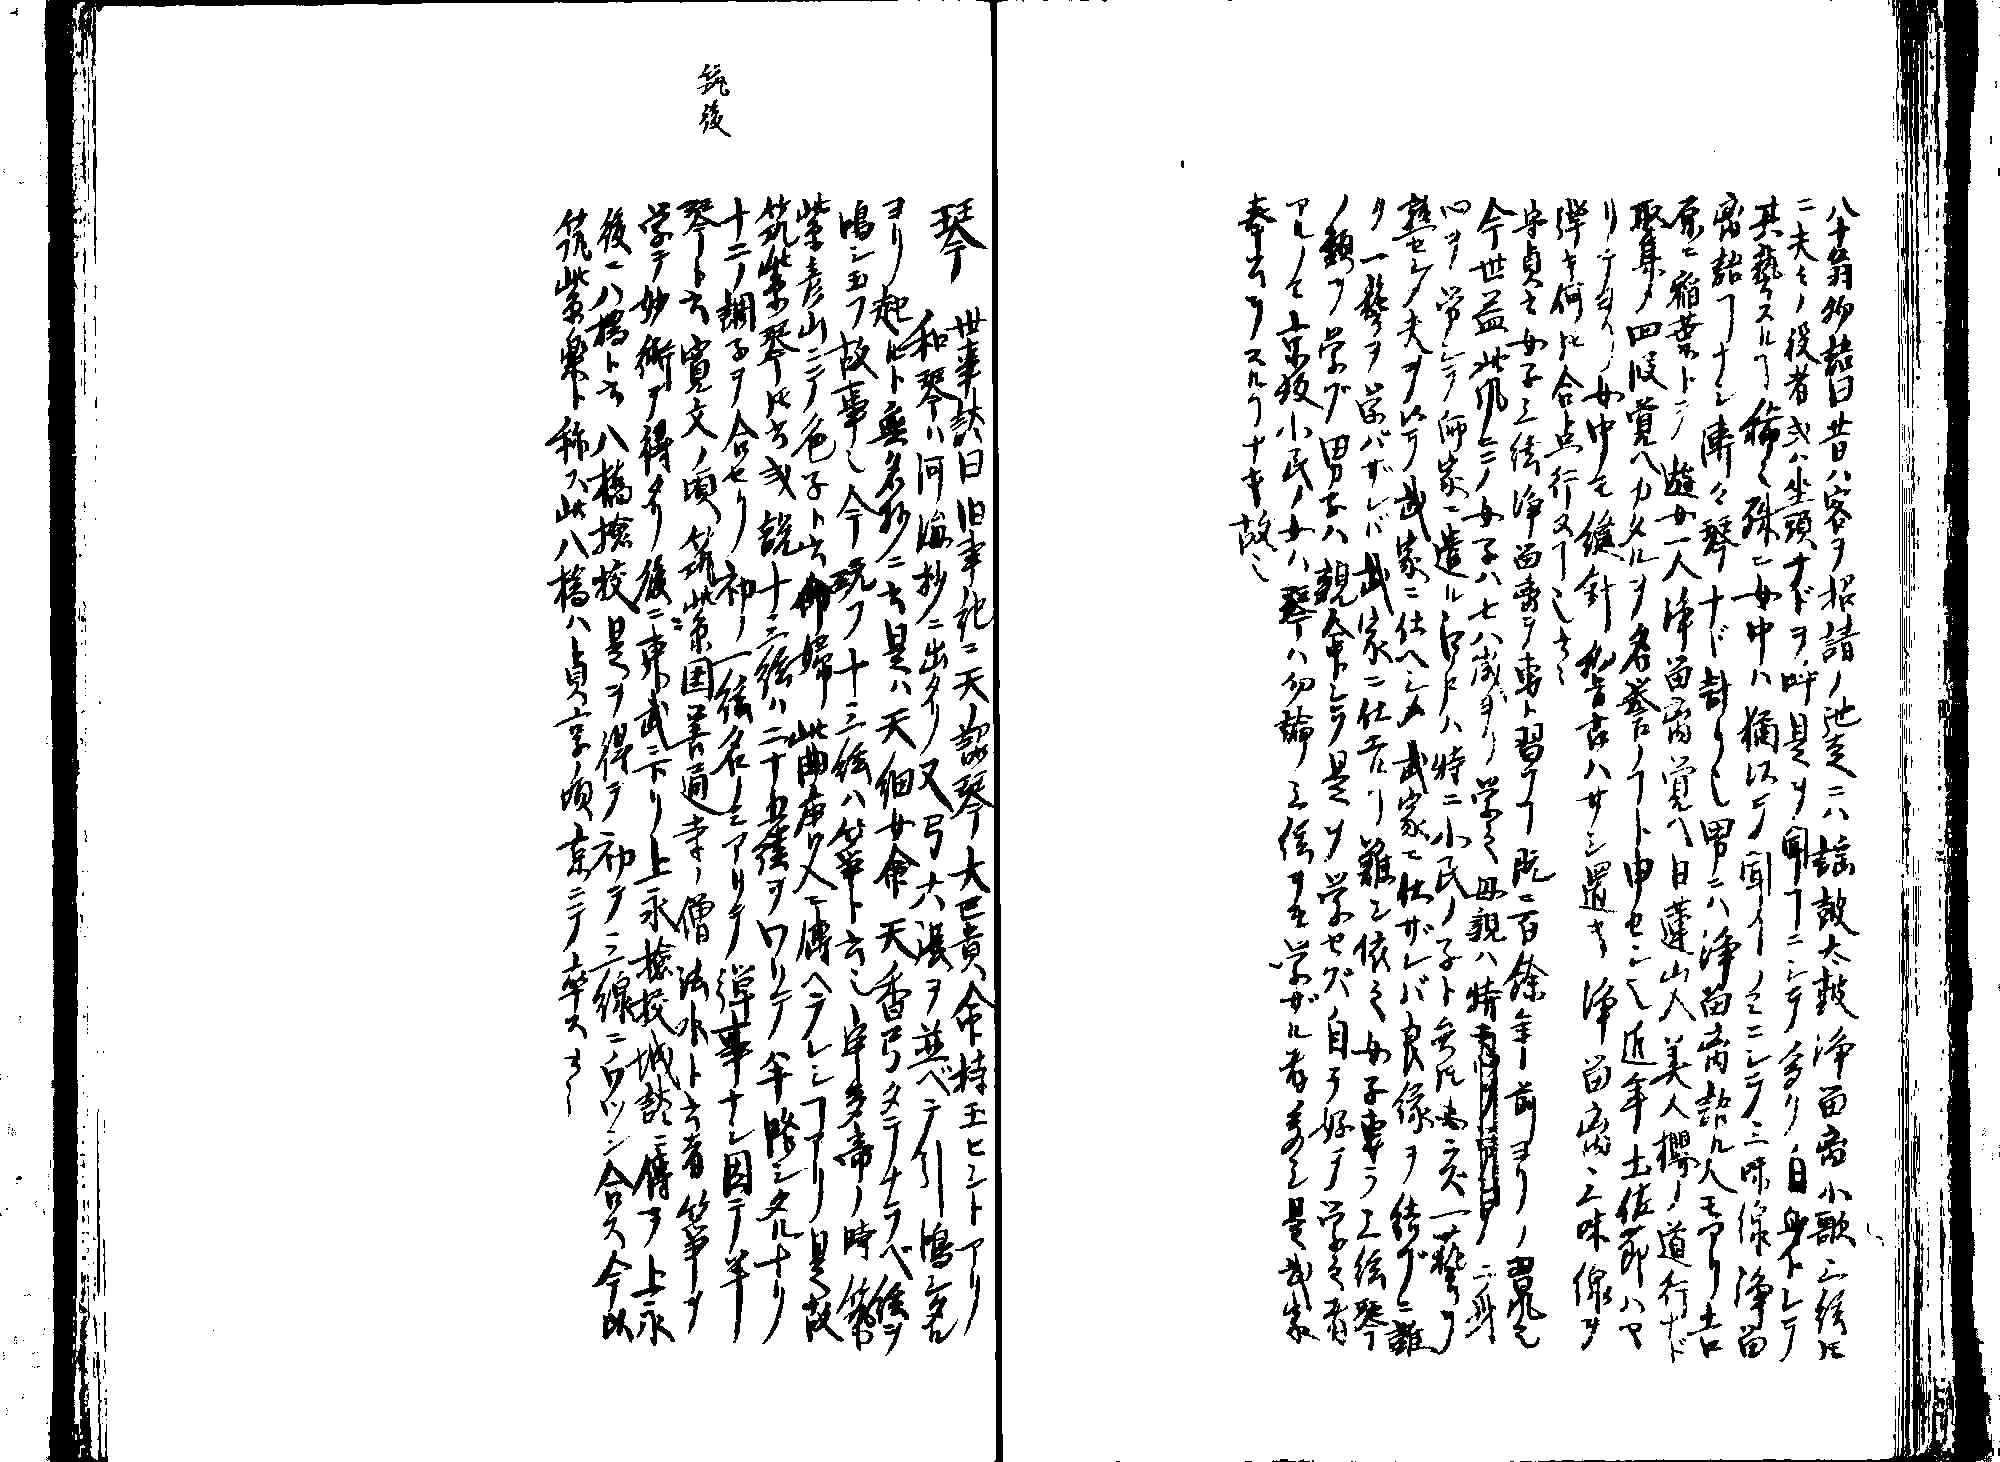 八十翁物語曰昔ハ客ヲ招請ノ池走ニハ謡鼓太鼓浄留离小歌三絃𪜈
ニ夫々ノ役者或ハ坐頭ナドヲ呼是ヲ聞ヿニシテ多クハ自身トシテ
其藝スルヿ稀也殊ニ女中ハ猶以テ聞ノミニシテ三味線浄留
离語ヿナシ漸々琴ナド計リ也男ニハ浄留离語ル人モ有リ吉
原ニ稲葉トテ遊女一人浄留离覚ヘ日蓮山入美人櫻ノ道行ナド
取集メ四段覚ヘカタルヲ名誉ノヿト申セシ也近年土佐節ハヤ
リテヨリ女中モ縫針
弾キ何𪜈合点行ヌヿ也云々
守貞云女子三絃浄留离ヲ専ト習フヿ既ニ百餘年前ヨリノ習風也
今世益此風ニテ女子ハ七八歳ヨリ学之母親ハ特
ヲ学シテ師家ニ遣ル江戸ハ特ニ小民ノ子ト云𪜈必ズ一藝ヲ
熟セシメ夫ヲ以テ武家ニ仕ヘシメ武家ニ仕ザレバ良縁ヲ結ブニ難
ク一藝ヲ学バザレバ武家ニ仕ルヿ難シ依之女子専ラ三絃琴
ノ類ヲ学ブ男子ハ親命シテ是ヲ学セズ自ヲ好テ学之者
アルノミ京坂小民ノ女ハ琴ハ勿論三絃ヲモ学ザル者多シ是武家
奉公ヲスルヿナキ故也
琴 世事談曰旧事紀ニ天ノ詔琴大己貴命持玉ヒシトアリ
和琴ハ河海抄ニ出タリ又弓六張ヲ並ベテ引鳴シタル
ヨリ起ルト無名抄ニ云是ハ天細女命天ノ香弓タテナラベ絃ヲ
鳴シ玉フ故事也今玩フ十三絃ハ箏ト云也宇多帝ノ時筑
紫彦山ニテ色子ト云命婦此曲唐人ニ傳ヘラレシヿアリ是故
筑紫琴𪜈云或説十三絃ハ二十五絃ヲワリテ半隆シタルナリ
十二ノ調子ヲ合セリ初ノ一絃名ノミアリテ弾事ナシ因テ半
琴ト云寛文ノ頃筑紫国善道寺ノ僧法水ト云者箏ヲ
筑後
学テ妙術ヲ得タリ後ニ東武ニ下リ上永撿校城談ニ傳ヲ上永
後ニ八橋ト云八橋撿校是ヲ得テ初テ三線ニウツシ合ス今以
筑紫楽ト称ス此八橋ハ貞享ノ頃京ニテ卒ス云々